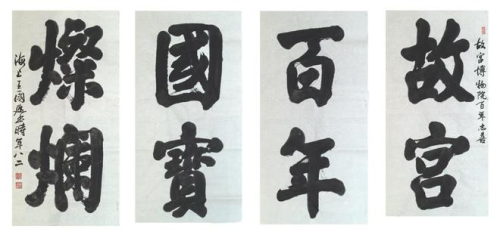 故宫博物院百年志喜
故宫
百年
國寶
燦爛
海上王 時年八二